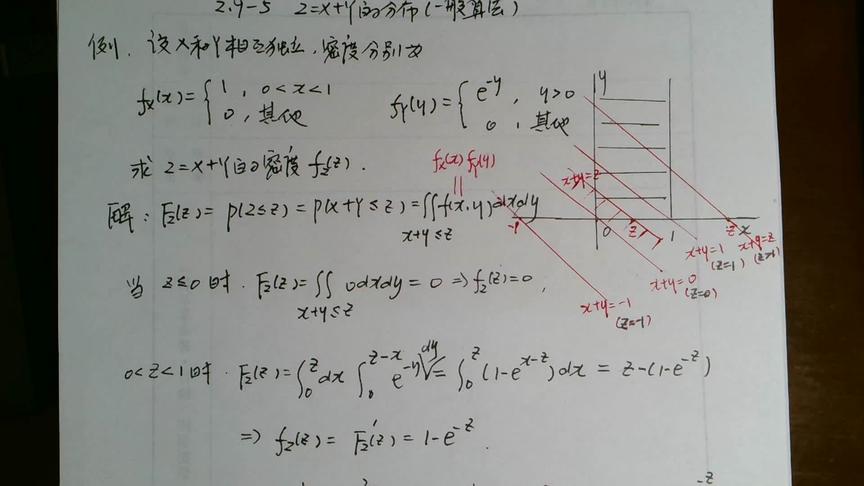 2.9-5 Z=X+Y的分布(一般算法)
例. 设X和Y相互独立,密度分别为
fx(x)={ 1, 0<x<1
0, 其他
fY(y)={ e^{-y}, y>0
0, 其他
求 Z=X+Y的密度 fz(z).
fx(x) fY(y)
||
解: Fz(z)=P(Z≤z)=P(X+Y≤z)=∬f(x,y)dxdy
x+y≤z
当 z≤0 时. Fz(z)=∬ 0dxdy=0 ⇒ fz(z)=0,
x+y≤z
0<z<1时. Fz(z)=∫_0^z dx ∫_0^{z-x} e^{-y} dy=∫_0^z (1-e^{x-z})dx=z-(1-e^{-z})
⇒ fz(z)=Fz'(z)=1-e^{-z}.
y
x+y=z
-1
0
z
1
z
x
x+y=1
(z=1)
x+y=z
(z>1)
x+y=0
(z=0)
x+y=-1
(z=-1)
-z